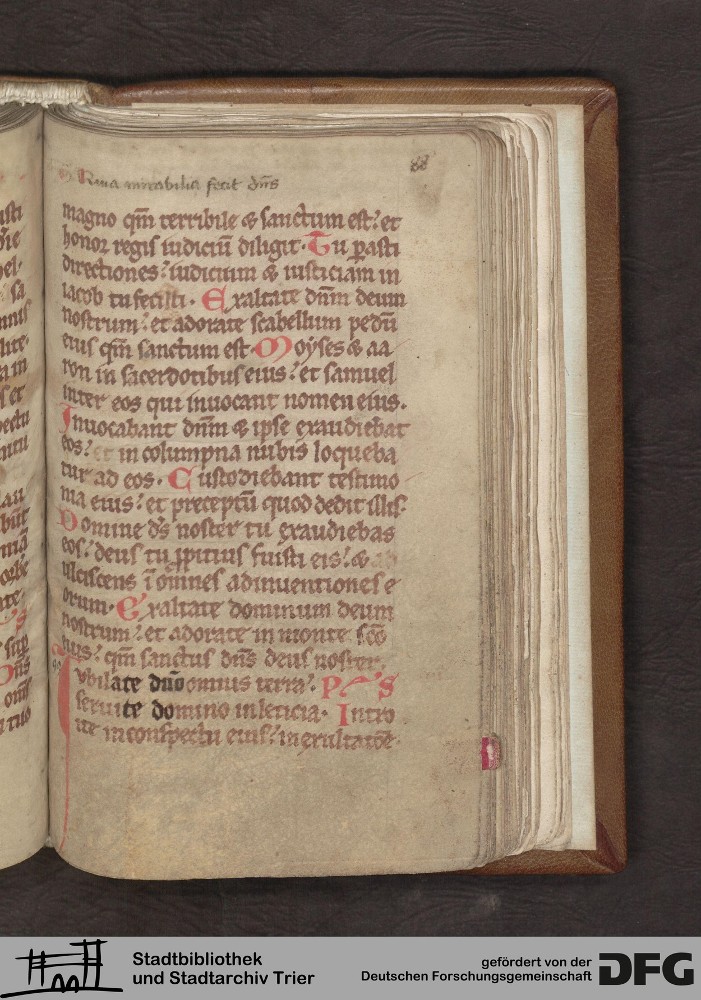 88
Quia mirabilia fecit dn̄s
magno qm̄ terribile & sanctum est: et
honor regis iudiciū diligit. Tu ꝑasti
directiones: iudicium & iusticiam in
iacob tu fecisti. Exaltate dn̄m deum
nostrum: et adorate scabellum pedū
eius qm̄ sanctum est. Moyses & aa
ron in sacerdotibus eius: et samuel
inter eos qui inuocant nomen eius.
Inuocabant dn̄m & ipse exaudiebat
eos: et in columpna nubis loqueba
tur ad eos. Custodiebant testimo
nia eius: et preceptū quod dedit illis.
Domine ds̄ noster tu exaudiebas
eos: deus tu ꝓpitius fuisti eis: &
ulciscens ī omnes adinuentiones e
orum. Exaltate dominum deum
nostrum: et adorate in monte scō
eius: qm̄ sanctus dn̄s deus noster.
Iubilate dn̄o omnis terra: PS
seruite domino in leticia. Intro
ite in conspectu eius: in exultatiōe.
Stadtbibliothek
und Stadtarchiv Trier
gefördert von der
Deutschen Forschungsgemeinschaft
DFG